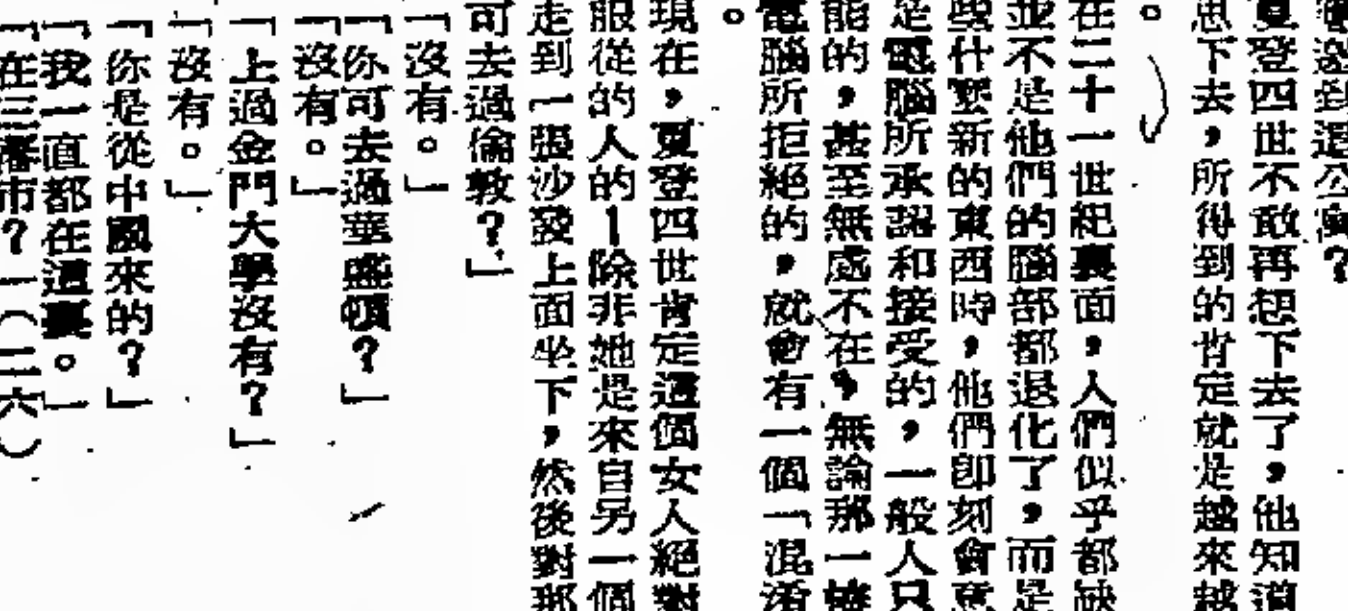 邀到這公寓？
夏登四世不敢再想下去了，他知道
思下去，所得到的肯定就是越來越
。
在二十一世紀裏面，人們似乎都缺
並不是他們的腦部都退化了，而是
些什麼新的東西時，他們卽刻會意
是電腦所承認和接受的，一般人只
能的，甚至無處不在，無論那一
電腦所拒絕的，就會有一個「混淆
。
現在，夏登四世肯定這個女人絕對
服從的人的—除非她是來自另一個
走到一張沙發上面坐下，然後對那
可去過倫敦？」
「沒有。」
「你可去過華盛頓？」
「沒有。」
「上過金門大學沒有？」
「沒有。」
「你是從中國來的？」
「我一直都在這裏。」
「在三藩市？」（二六）